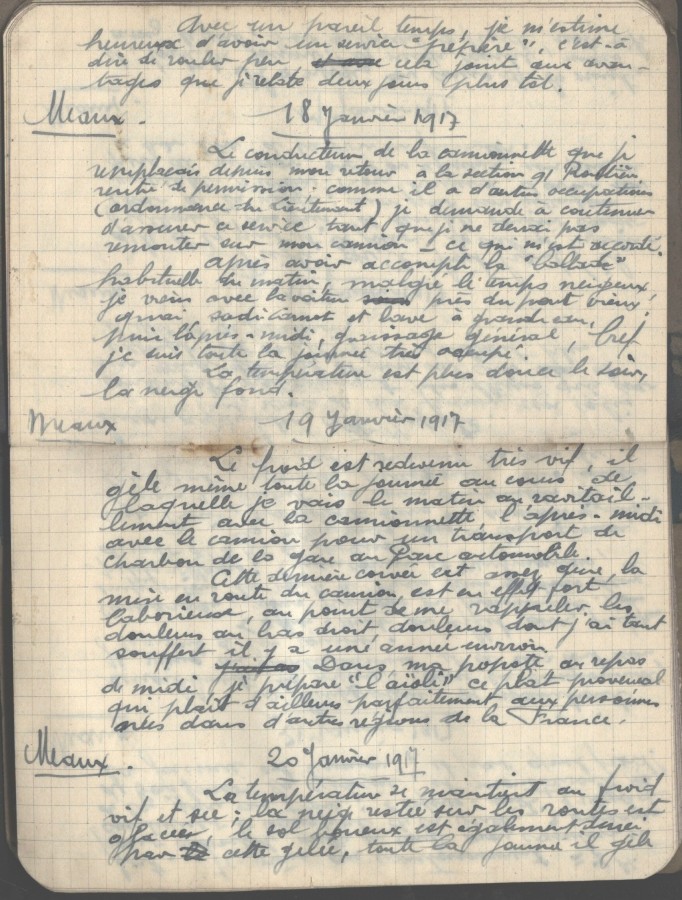 Avec un pareil temps, je m'estime
heureux d'avoir un service "pépère", c'est-à
dire de rouler peu cela joint aux avan-
tages que je relate deux jours plus tôt.
Meaux. 18 Janvier 1917
Le conducteur de la camionnette que je
remplaçais depuis mon retour à la section 91
rentre de permission. comme il a d'autres occupations
(ordonnance du lieutenant) je demande à continuer
d'assurer ce service tant que je ne devrai pas
remonter sur mon camion - ce qui m'est accordé.
Après avoir accompli la "ballade"
habituelle du matin, malgré le temps neigeux,
je viens avec la voiture près du pont vieux
quai Sadi Carnot et lave à grande eau,
puis l'après-midi, graissage général, bref
je suis toute la journée très occupé.
La température est plus douce le soir,
la neige fond.
Meaux 19 Janvier 1917
Le froid est redevenu très vif, il
gèle même toute la journée au cours de
laquelle je vais le matin au ravitail-
lement avec la camionnette l'après-midi
avec le camion pour un transport de
charbon de la gare au Parc automobile.
Cette dernière corvée est assez dure, la
mise en route du camion est en effet fort
laborieuse, au point de me rappeler les
douleurs au bras droit, douleurs dont j'ai tant
souffert il y a une année environ.
Dans ma popote, au repas
de midi, je prépare "l'aïoli" ce plat provençal
qui plaît d'ailleurs parfaitement aux personnes
nées dans d'autres régions de la France.
Meaux. 20 Janvier 1917
La température se maintient au froid
vif et sec; la neige restée sur les routes est
glacée, le sol boueux est également durci
par cette gelée, toute la journée il gèle